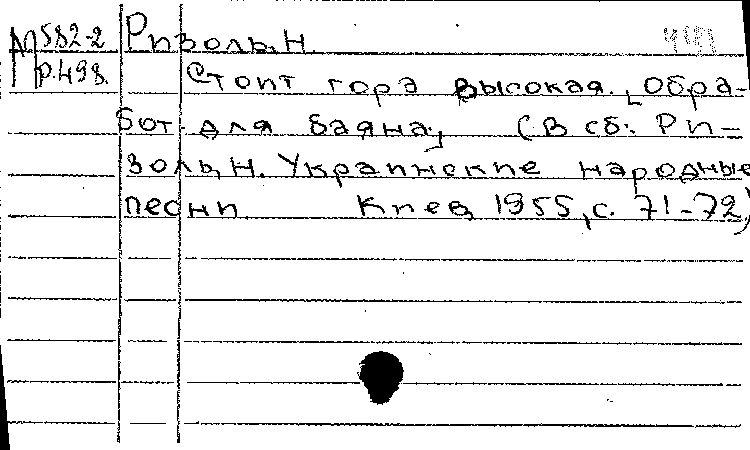 М 582-2 Ризоль, Н.
Р.498. Стоит гора высокая. [Обра-
бот. для баяна] (В сб: Ри-
золь, Н. Украинские народные
песни Киев, 1955, с. 71-72)